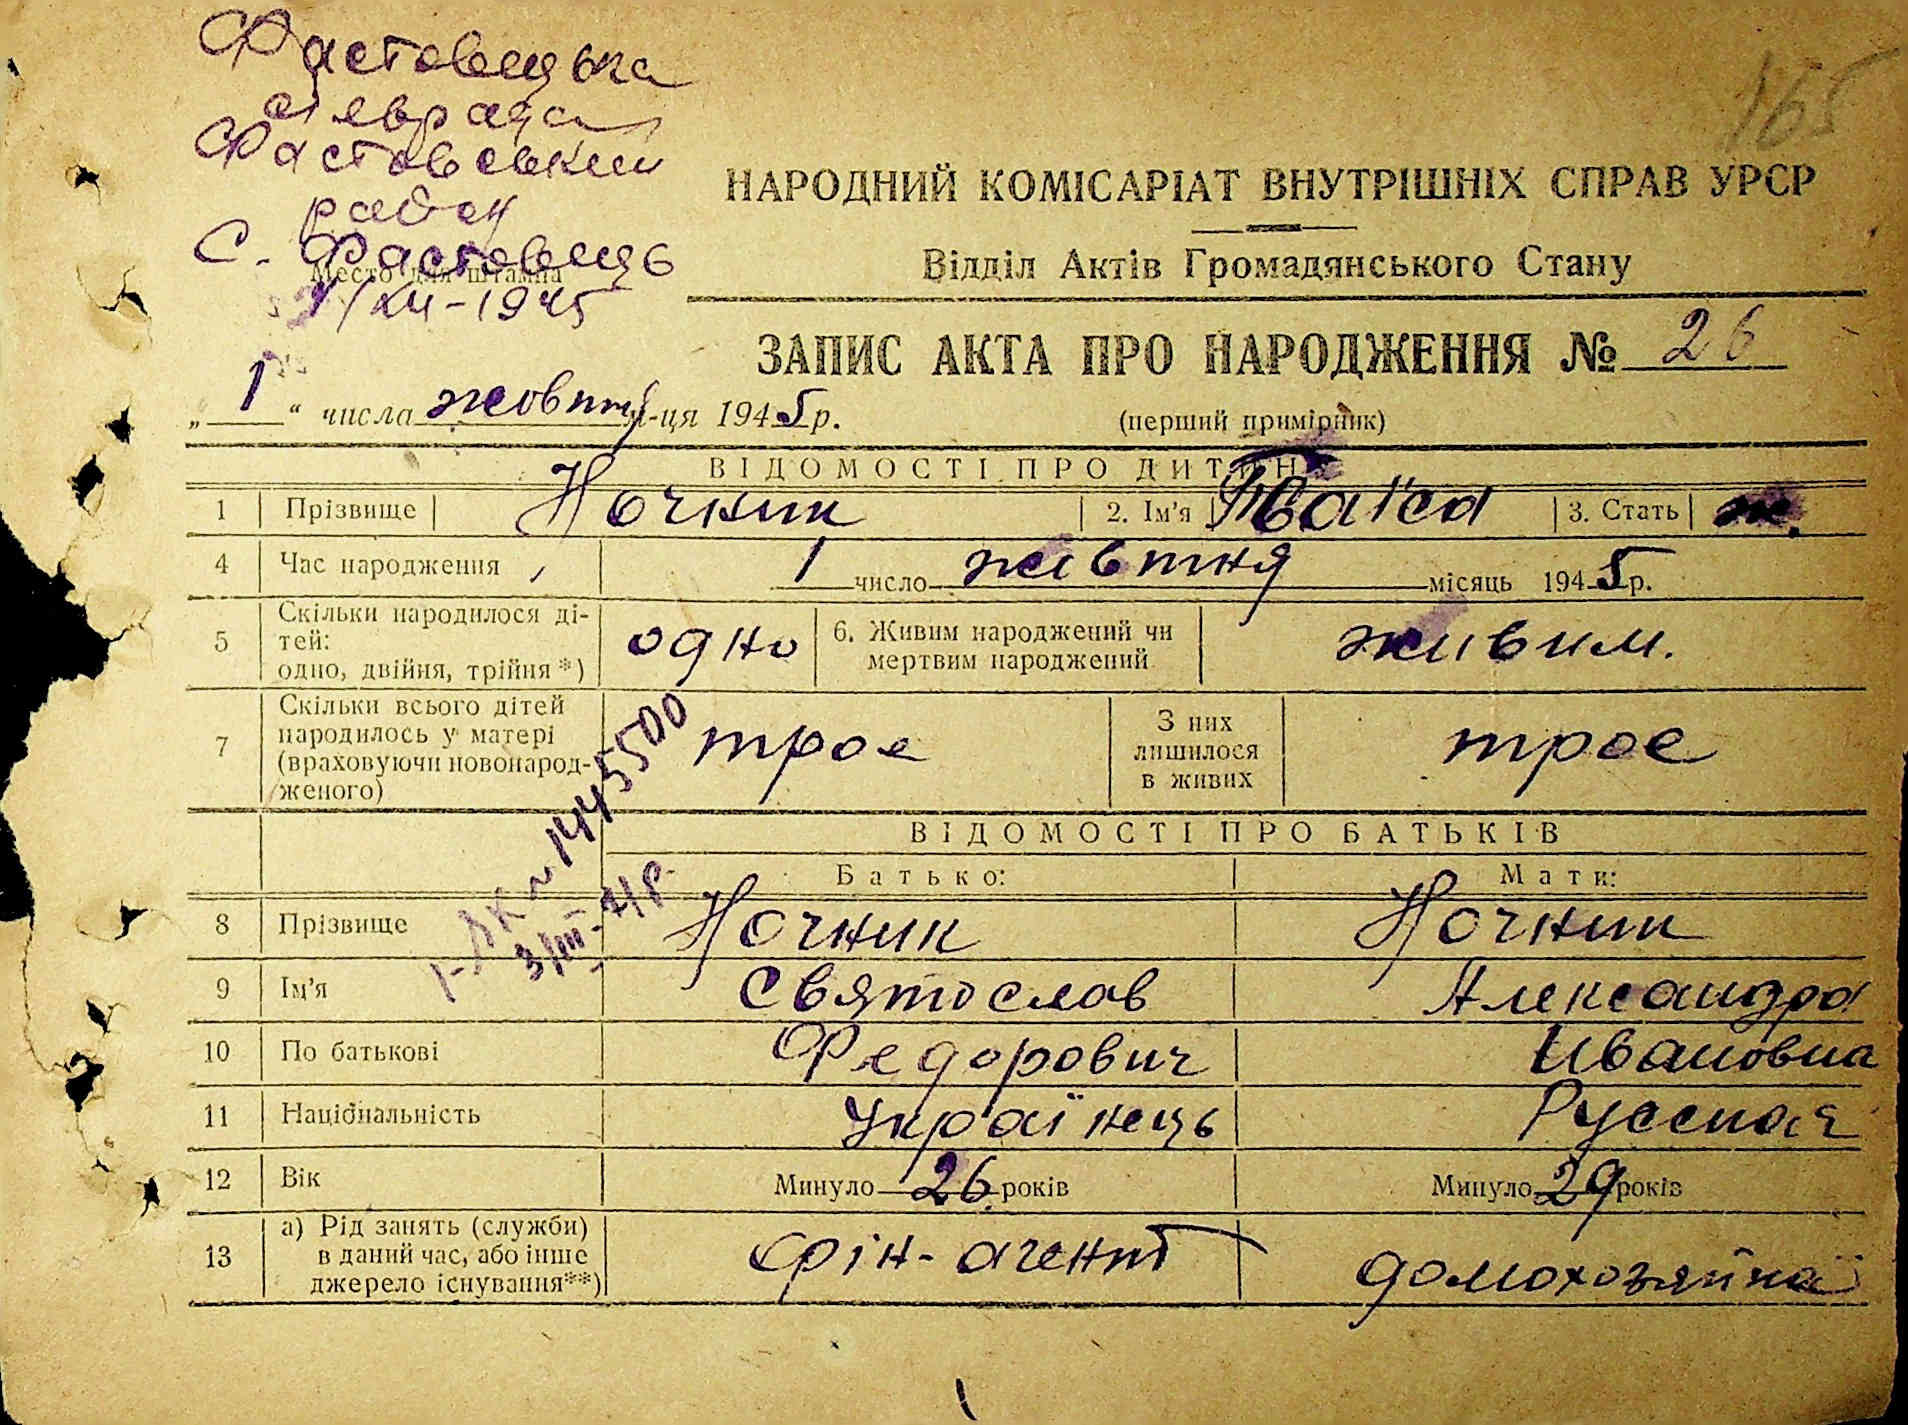 165
Фастовецька
сілврада
Фастовський
район
С. Фастовець
Место для штампа
1/XII-1945
НАРОДНИЙ КОМІСАРІАТ ВНУТРІШНІХ СПРАВ УРСР
Відділ Актів Громадянського Стану
ЗАПИС АКТА ПРО НАРОДЖЕННЯ № 26
„ 1 “ числа жовтня м-ця 1945 р.
(перший примірник)
ВІДОМОСТІ ПРО ДИТИНУ
1 Прізвище Ночник 2. Ім'я Таїса 3. Стать ж.
4 Час народження 1 число жовтня місяць 1945 р.
5 Скільки народилося ді-
тей:
одно, двійня, трійня*) одно 6. Живим народжений чи
мертвим народжений живим.
7 Скільки всього дітей
народилось у матері
(враховуючи новонарод-
женого) троє З них
лишилося
в живих троє
1-ЛК № 1445500
3/III-71р.
ВІДОМОСТІ ПРО БАТЬКІВ
Батько: Мати:
8 Прізвище Ночник Ночник
9 Ім'я Святослав Александра
10 По батькові Федорович Ивановна
11 Національність Українець Русская
12 Вік Минуло 26 років Минуло 29 років
13 а) Рід занять (служби)
в даний час, або інше
джерело існування**) фін-агент домохозяйка